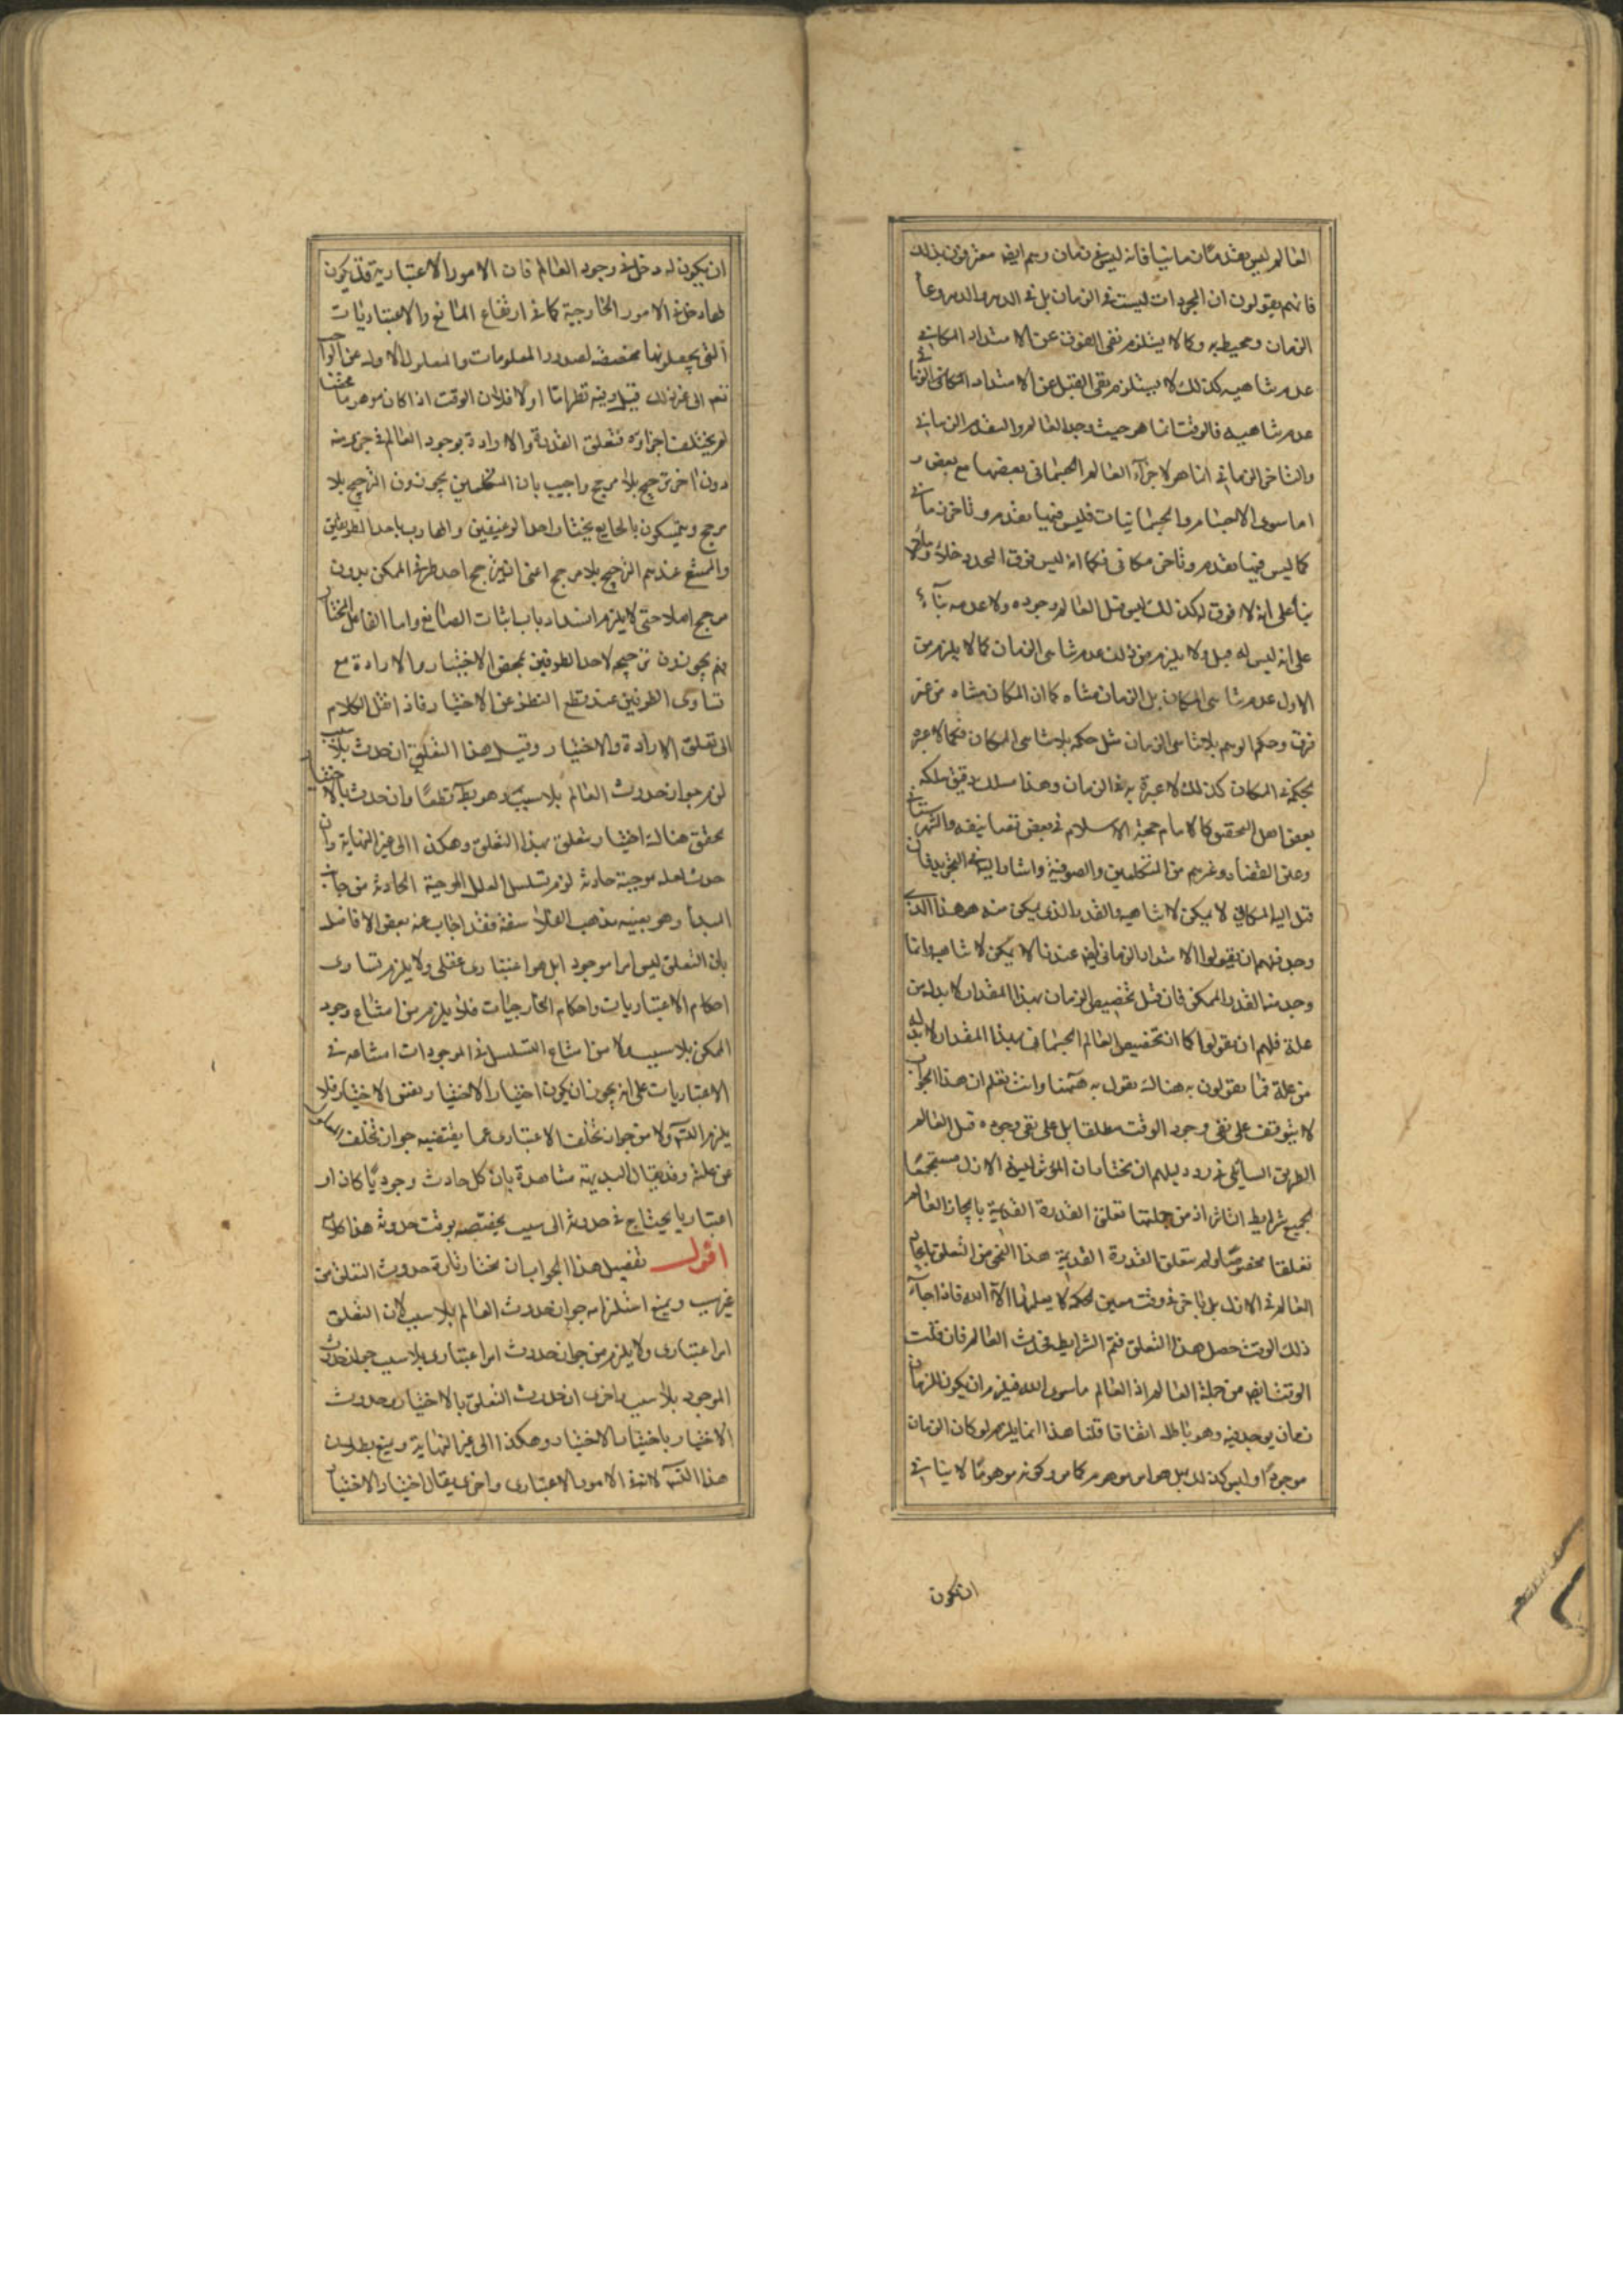 العالم ليس بقدم زمانيا فانه ليس في زمان وهم ايضا معترفون بذلك
فانهم يقولون ان المجردات ليست في الزمان بل في الدهر والدهر وعأ
الزمان ومحيط به وكما لا يستلزم نفي الفوق عن الامتداد المكاني
عدم تناهيه كذلك لا يستلزم نفي القبل عن الامتداد الزماني
عدم تناهيه فالوقت انما هو حيث وجد العالم والتقدم الزماني
والتاخر الزماني انما هو لاجزآء العالم الجسماني بعضها مع بعض و
اما سوى الاجسام والجسمانيات فليس فيها تقدم وتاخر زماني
كما ليس فيها تقدم وتاخر مكاني فكما انه ليس فوق المحدد خلاء ولا ملاء
بنأ على انه لا فوق له كذلك ليس قبل العالم وجوده ولا عدمه بنآء
على انه ليس له قبل ولا يلزم من ذلك عدم تناهى الزمان كما لا يلزم من
الاول عدم تناهى المكان بل الزمان متناه كما ان المكان متناه من غير
فرق وحكم الوهم بلا تناهى الزمان مثل حكمه بلا تناهى المكان فكما لا عبرة
بحكمه في المكان كذلك لا عبرة به في الزمان وهذا مسلك دقيق سلكه
بعض اهل التحقيق كالامام حجة الاسلام في بعض تصانيفه والشهرستاني
وعين القضاة وغيرهم من المتكلمين والصوفية واشار اليه في التجريد فان
قيل المكاني لا يمكن لا تناهيه والقدر الذي يمكن منه هو هذا الذي
وجد فلهم ان يقولوا الامتداد الزماني ايضا عندنا لا يمكن لا تناهيه وانما
وجد منه القدر الممكن فان قيل تخصيص الزمان بهذا المقدار لا بد له من
علة فلهم ان يقولوا كما ان تخصيص العالم الجسماني بهذا المقدار لا بد له
من علة فما يقولون به هناك نقول به ههنا وانت تعلم ان هذا الجواب
لا يتوقف على نفي وجود الوقت مطلقا بل على نفي وجوده قبل العالم
الطريق السابع في رد دليلهم ان نختار ان المؤثر ليس في الازل مستجمعا
لجميع شرايط التاثير اذ من جملتها تعلق القدرة القديمة بايجاد العالم
تعلقا مخصوصا ولم يتعلق القدرة القديمة هذا النحو من التعلق بايجاد
العالم في الازل بل تاخر في وقت معين لحكمة لا يعلمها الا الله فاذا جآء
ذلك الوقت حصل هذا التعلق فتم الشرايط فحدث العالم فان قلت
الوقت ايضا من جملة العالم اذ العالم ما سوى الله فيلزم ان يكون للزمان
زمان يوجد فيه وهو باطل اتفاقا قلنا هذا انما يلزم لو كان الزمان
موجودا وليس كذلك بل هو امر موهوم كما مر وكونه موهوما لا ينافي
ان يكون
ان يكون له دخل في وجود العالم فان الامور الاعتبارية قد يكون
لها دخل في الامور الخارجية كما في ارتفاع المانع والاعتباريات
التي يجعلونها مخصصة لصدور المعلومات والمعلول الاول عن الواجب
تعالى عن ذلك قيل وفيه نظر اما اولا فلان الوقت اذا كان موهوما محضا
لم يختلف اجزاؤه فتعلق القدرة والارادة بوجود العالم في جزء منه
دون اخر ترجيح بلا مرجح واجيب بان المتكلمين يجوزون الترجيح بلا
مرجح ويتمسكون بالجايع يختار احد الرغيفين والهارب باحد الطريقين
والممتنع عندهم الترجح بلا مرجح اعنى ان يترجح احد طرفي الممكن بدون
مرجح اصلا حتى لا يلزم انسداد باب اثبات الصانع واما الفاعل المختار
فهم يجوزون ترجيحه لاحد الطرفين بمحض الاختيار والارادة مع
تساوى الطرفين عند قطع النظر عن الاختيار فاذا نقل الكلام
الى تعلق الارادة والاختيار وقيل هذا التعلق ان حدث بلا سبب
لزم جواز حدوث العالم بلا سبب وهو بط قطعا وان حدث بالاختيار
تحقق هناك اختيار يتعلق بهذا التعلق وهكذا الى غير النهاية وان
حدث لعلة موجبة حادثة لزم تسلسل العلل الموجبة الحادثة من جانب
المبدأ وهو بعينه مذهب الفلاسفة فقد اجاب عنه بعض الافاضل
بان التعلق ليس امرا موجودا بل هو اعتبارى عقلي ولا يلزم تساوى
احكام الاعتباريات واحكام الخارجيات فلا يلزم من امتناع وجود
الممكن بلا سبب ولا من امتناع التسلسل في الموجودات امتناعه في
الاعتباريات على انه يجوز ان يكون اختيار الاختيار نفس الاختيار فلا
يلزم التسـ ولا من جواز تخلف الاعتبارى عما يقتضيه جواز تخلف المعلول
عن علته وقد يقال البديهة شاهدة بان كل حادث وجوديا كان او
اعتباريا يحتاج في حدوثه الى سبب يخصصه بوقت حدوثه هذا كلامه
اقول تفصيل هذا الجواب ان نختار تارة حدوث التعلق من
غير سبب ويمنع استلزامه جواز حدوث العالم بلا سبب لان التعلق
امر اعتبارى ولا يلزم من جواز حدوث امر اعتبارى بلا سبب جواز حدوث
الموجود بلا سبب واخرى ان حدوث التعلق بالاختيار وحدوث
الاختيار باختيار الاختيار وهكذا الى غير النهاية ويمنع بطلان
هذا التسـ لانه في الامور الاعتبارى واخرى يقال اختيار الاختيار